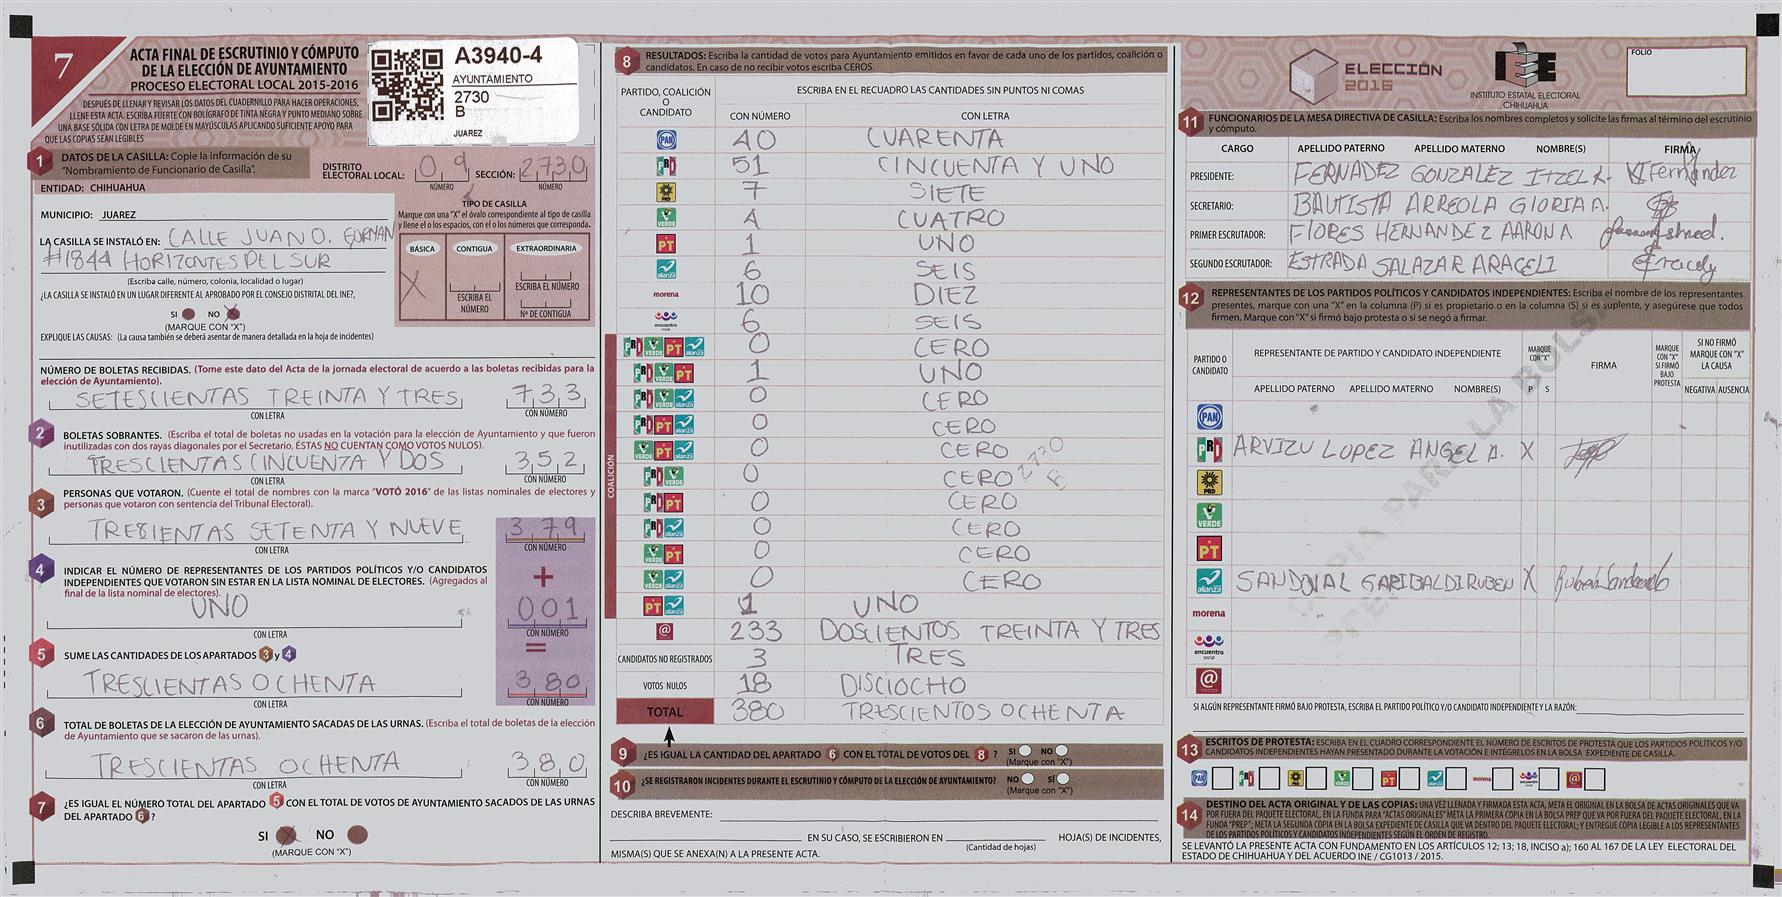 7
ACTA FINAL DE ESCRUTINIO Y CÓMPUTO
DE LA ELECCIÓN DE AYUNTAMIENTO
PROCESO ELECTORAL LOCAL 2015-2016
DESPUÉS DE LLENAR Y REVISAR LOS DATOS DEL CUADERNILLO PARA HACER OPERACIONES,
LLENE ESTA ACTA. ESCRIBA FUERTE CON BOLÍGRAFO DE TINTA NEGRA Y PUNTO MEDIANO SOBRE
UNA BASE SÓLIDA CON LETRA DE MOLDE EN MAYÚSCULAS APLICANDO SUFICIENTE APOYO PARA
QUE LAS COPIAS SEAN LEGIBLES
A3940-4
AYUNTAMIENTO
2730
B
JUAREZ
1 DATOS DE LA CASILLA: Copie la información de su
"Nombramiento de Funcionario de Casilla".
DISTRITO ELECTORAL LOCAL: 0 9 SECCIÓN: 2730
NÚMERO NÚMERO
ENTIDAD: CHIHUAHUA
MUNICIPIO: JUAREZ
LA CASILLA SE INSTALÓ EN: CALLE JUAN O.
#1844 HORIZONTES DEL SUR
(Escriba calle, número, colonia, localidad o lugar)
¿LA CASILLA SE INSTALÓ EN UN LUGAR DIFERENTE AL APROBADO POR EL CONSEJO DISTRITAL DEL INE?,
SI NO X
(MARQUE CON "X")
EXPLIQUE LAS CAUSAS: (La causa también se deberá asentar de manera detallada en la hoja de incidentes)
TIPO DE CASILLA
Marque con una "X" el óvalo correspondiente al tipo de casilla
y llene el o los espacios, con el o los números que corresponda.
BÁSICA CONTIGUA EXTRAORDINARIA
X
ESCRIBA EL NÚMERO
ESCRIBA EL NÚMERO
Nº DE CONTIGUA
NÚMERO DE BOLETAS RECIBIDAS. (Tome este dato del Acta de la jornada electoral de acuerdo a las boletas recibidas para la
elección de Ayuntamiento).
SETESCIENTAS TREINTA Y TRES 733
CON LETRA CON NÚMERO
2 BOLETAS SOBRANTES. (Escriba el total de boletas no usadas en la votación para la elección de Ayuntamiento y que fueron
inutilizadas con dos rayas diagonales por el Secretario, ÉSTAS NO CUENTAN COMO VOTOS NULOS).
TRESCIENTAS CINCUENTA Y DOS 352
CON LETRA CON NÚMERO
3 PERSONAS QUE VOTARON. (Cuente el total de nombres con la marca "VOTÓ 2016" de las listas nominales de electores y
personas que votaron con sentencia del Tribunal Electoral).
SETENTA Y NUEVE 379
CON LETRA CON NÚMERO
+
4 INDICAR EL NÚMERO DE REPRESENTANTES DE LOS PARTIDOS POLÍTICOS Y/O CANDIDATOS
INDEPENDIENTES QUE VOTARON SIN ESTAR EN LA LISTA NOMINAL DE ELECTORES. (Agregados al
final de la lista nominal de electores).
UNO 001
CON LETRA CON NÚMERO
=
5 SUME LAS CANTIDADES DE LOS APARTADOS 3 y 4
TRESCIENTAS OCHENTA 380
CON LETRA CON NÚMERO
6 TOTAL DE BOLETAS DE LA ELECCIÓN DE AYUNTAMIENTO SACADAS DE LAS URNAS. (Escriba el total de boletas de la elección
de Ayuntamiento que se sacaron de las urnas).
TRESCIENTAS OCHENTA 380
CON LETRA CON NÚMERO
7 ¿ES IGUAL EL NÚMERO TOTAL DEL APARTADO 5 CON EL TOTAL DE VOTOS DE AYUNTAMIENTO SACADOS DE LAS URNAS
DEL APARTADO 6?
SI X NO
(MARQUE CON "X")
8 RESULTADOS: Escriba la cantidad de votos para Ayuntamiento emitidos en favor de cada uno de los partidos, coalición o
candidatos. En caso de no recibir votos escriba CEROS.
PARTIDO, COALICIÓN O CANDIDATO
ESCRIBA EN EL RECUADRO LAS CANTIDADES SIN PUNTOS NI COMAS
CON NÚMERO CON LETRA
PAN 40 CUARENTA
PRI 51 CINCUENTA Y UNO
PRD 7 SIETE
VERDE 4 CUATRO
PT 1 UNO
alianza 6 SEIS
morena 10 DIEZ
encuentro social 6 SEIS
COALICIÓN
PRI VERDE PT alianza 0 CERO
PRI VERDE PT 1 UNO
PRI VERDE alianza 0 CERO
PRI PT alianza 0 CERO
VERDE PT alianza 0 CERO
PRI VERDE 0 CERO
2730
B
PRI PT 0 CERO
PRI alianza 0 CERO
VERDE PT 0 CERO
VERDE alianza 0 CERO
PT alianza 1 UNO
@ 233 DOSCIENTOS TREINTA Y TRES
CANDIDATOS NO REGISTRADOS 3 TRES
VOTOS NULOS 18 DISCIOCHO
TOTAL 380 TRESCIENTOS OCHENTA
9 ¿ES IGUAL LA CANTIDAD DEL APARTADO 6 CON EL TOTAL DE VOTOS DEL 8 ? SI NO
(Marque con "X")
10 ¿SE REGISTRARON INCIDENTES DURANTE EL ESCRUTINIO Y CÓMPUTO DE LA ELECCIÓN DE AYUNTAMIENTO? NO SÍ
(Marque con "X")
DESCRIBA BREVEMENTE:
EN SU CASO, SE ESCRIBIERON EN HOJA(S) DE INCIDENTES,
(Cantidad de hojas)
MISMA(S) QUE SE ANEXA(N) A LA PRESENTE ACTA.
ELECCIÓN
2016
IEE
INSTITUTO ESTATAL ELECTORAL
CHIHUAHUA
FOLIO
11 FUNCIONARIOS DE LA MESA DIRECTIVA DE CASILLA: Escriba los nombres completos y solicite las firmas al término del escrutinio
y cómputo.
CARGO APELLIDO PATERNO APELLIDO MATERNO NOMBRE(S) FIRMA
PRESIDENTE: FERNADEZ GONZALEZ ITZEL R.
SECRETARIO: BAUTISTA ARREOLA GLORIA A.
PRIMER ESCRUTADOR: FLORES HERNANDEZ AARON A
SEGUNDO ESCRUTADOR: ESTRADA SALAZAR ARACELI
12 REPRESENTANTES DE LOS PARTIDOS POLÍTICOS Y CANDIDATOS INDEPENDIENTES: Escriba el nombre de los representantes
presentes, marque con una "X" en la columna (P) si es propietario o en la columna (S) si es suplente, y asegúrese que todos
firmen. Marque con "X" si firmó bajo protesta o si se negó a firmar.
PARTIDO O CANDIDATO
REPRESENTANTE DE PARTIDO Y CANDIDATO INDEPENDIENTE
APELLIDO PATERNO APELLIDO MATERNO NOMBRE(S)
MARQUE CON "X"
P S
FIRMA
MARQUE CON "X" SI FIRMÓ BAJO PROTESTA
SI NO FIRMÓ MARQUE CON "X" LA CAUSA
NEGATIVA AUSENCIA
PAN
PRI ARVIZU LOPEZ ANGEL A. X
PRD
VERDE
PT
alianza SANDOVAL GARIBALDI RUBEN X
morena
encuentro social
@
SI ALGÚN REPRESENTANTE FIRMÓ BAJO PROTESTA, ESCRIBA EL PARTIDO POLÍTICO Y/O CANDIDATO INDEPENDIENTE Y LA RAZÓN:
13 ESCRITOS DE PROTESTA: ESCRIBA EN EL CUADRO CORRESPONDIENTE EL NÚMERO DE ESCRITOS DE PROTESTA QUE LOS PARTIDOS POLÍTICOS Y/O
CANDIDATOS INDEPENDIENTES HAYAN PRESENTADO DURANTE LA VOTACIÓN E INTÉGRELOS EN LA BOLSA EXPEDIENTE DE CASILLA.
14 DESTINO DEL ACTA ORIGINAL Y DE LAS COPIAS: UNA VEZ LLENADA Y FIRMADA ESTA ACTA, META EL ORIGINAL EN LA BOLSA DE ACTAS ORIGINALES QUE VA
POR FUERA DEL PAQUETE ELECTORAL, EN LA FUNDA PARA "ACTAS ORIGINALES" META LA PRIMERA COPIA EN LA BOLSA PREP QUE VA POR FUERA DEL PAQUETE ELECTORAL, EN LA
FUNDA "PREP"; META LA SEGUNDA COPIA EN LA BOLSA EXPEDIENTE DE CASILLA QUE VA DENTRO DEL PAQUETE ELECTORAL; Y ENTREGUE COPIA LEGIBLE A LOS REPRESENTANTES
DE LOS PARTIDOS POLÍTICOS Y CANDIDATOS INDEPENDIENTES SEGÚN EL ORDEN DE REGISTRO.
SE LEVANTÓ LA PRESENTE ACTA CON FUNDAMENTO EN LOS ARTÍCULOS 12; 13; 18, INCISO a); 160 AL 167 DE LA LEY ELECTORAL DEL
ESTADO DE CHIHUAHUA Y DEL ACUERDO INE / CG1013 / 2015.